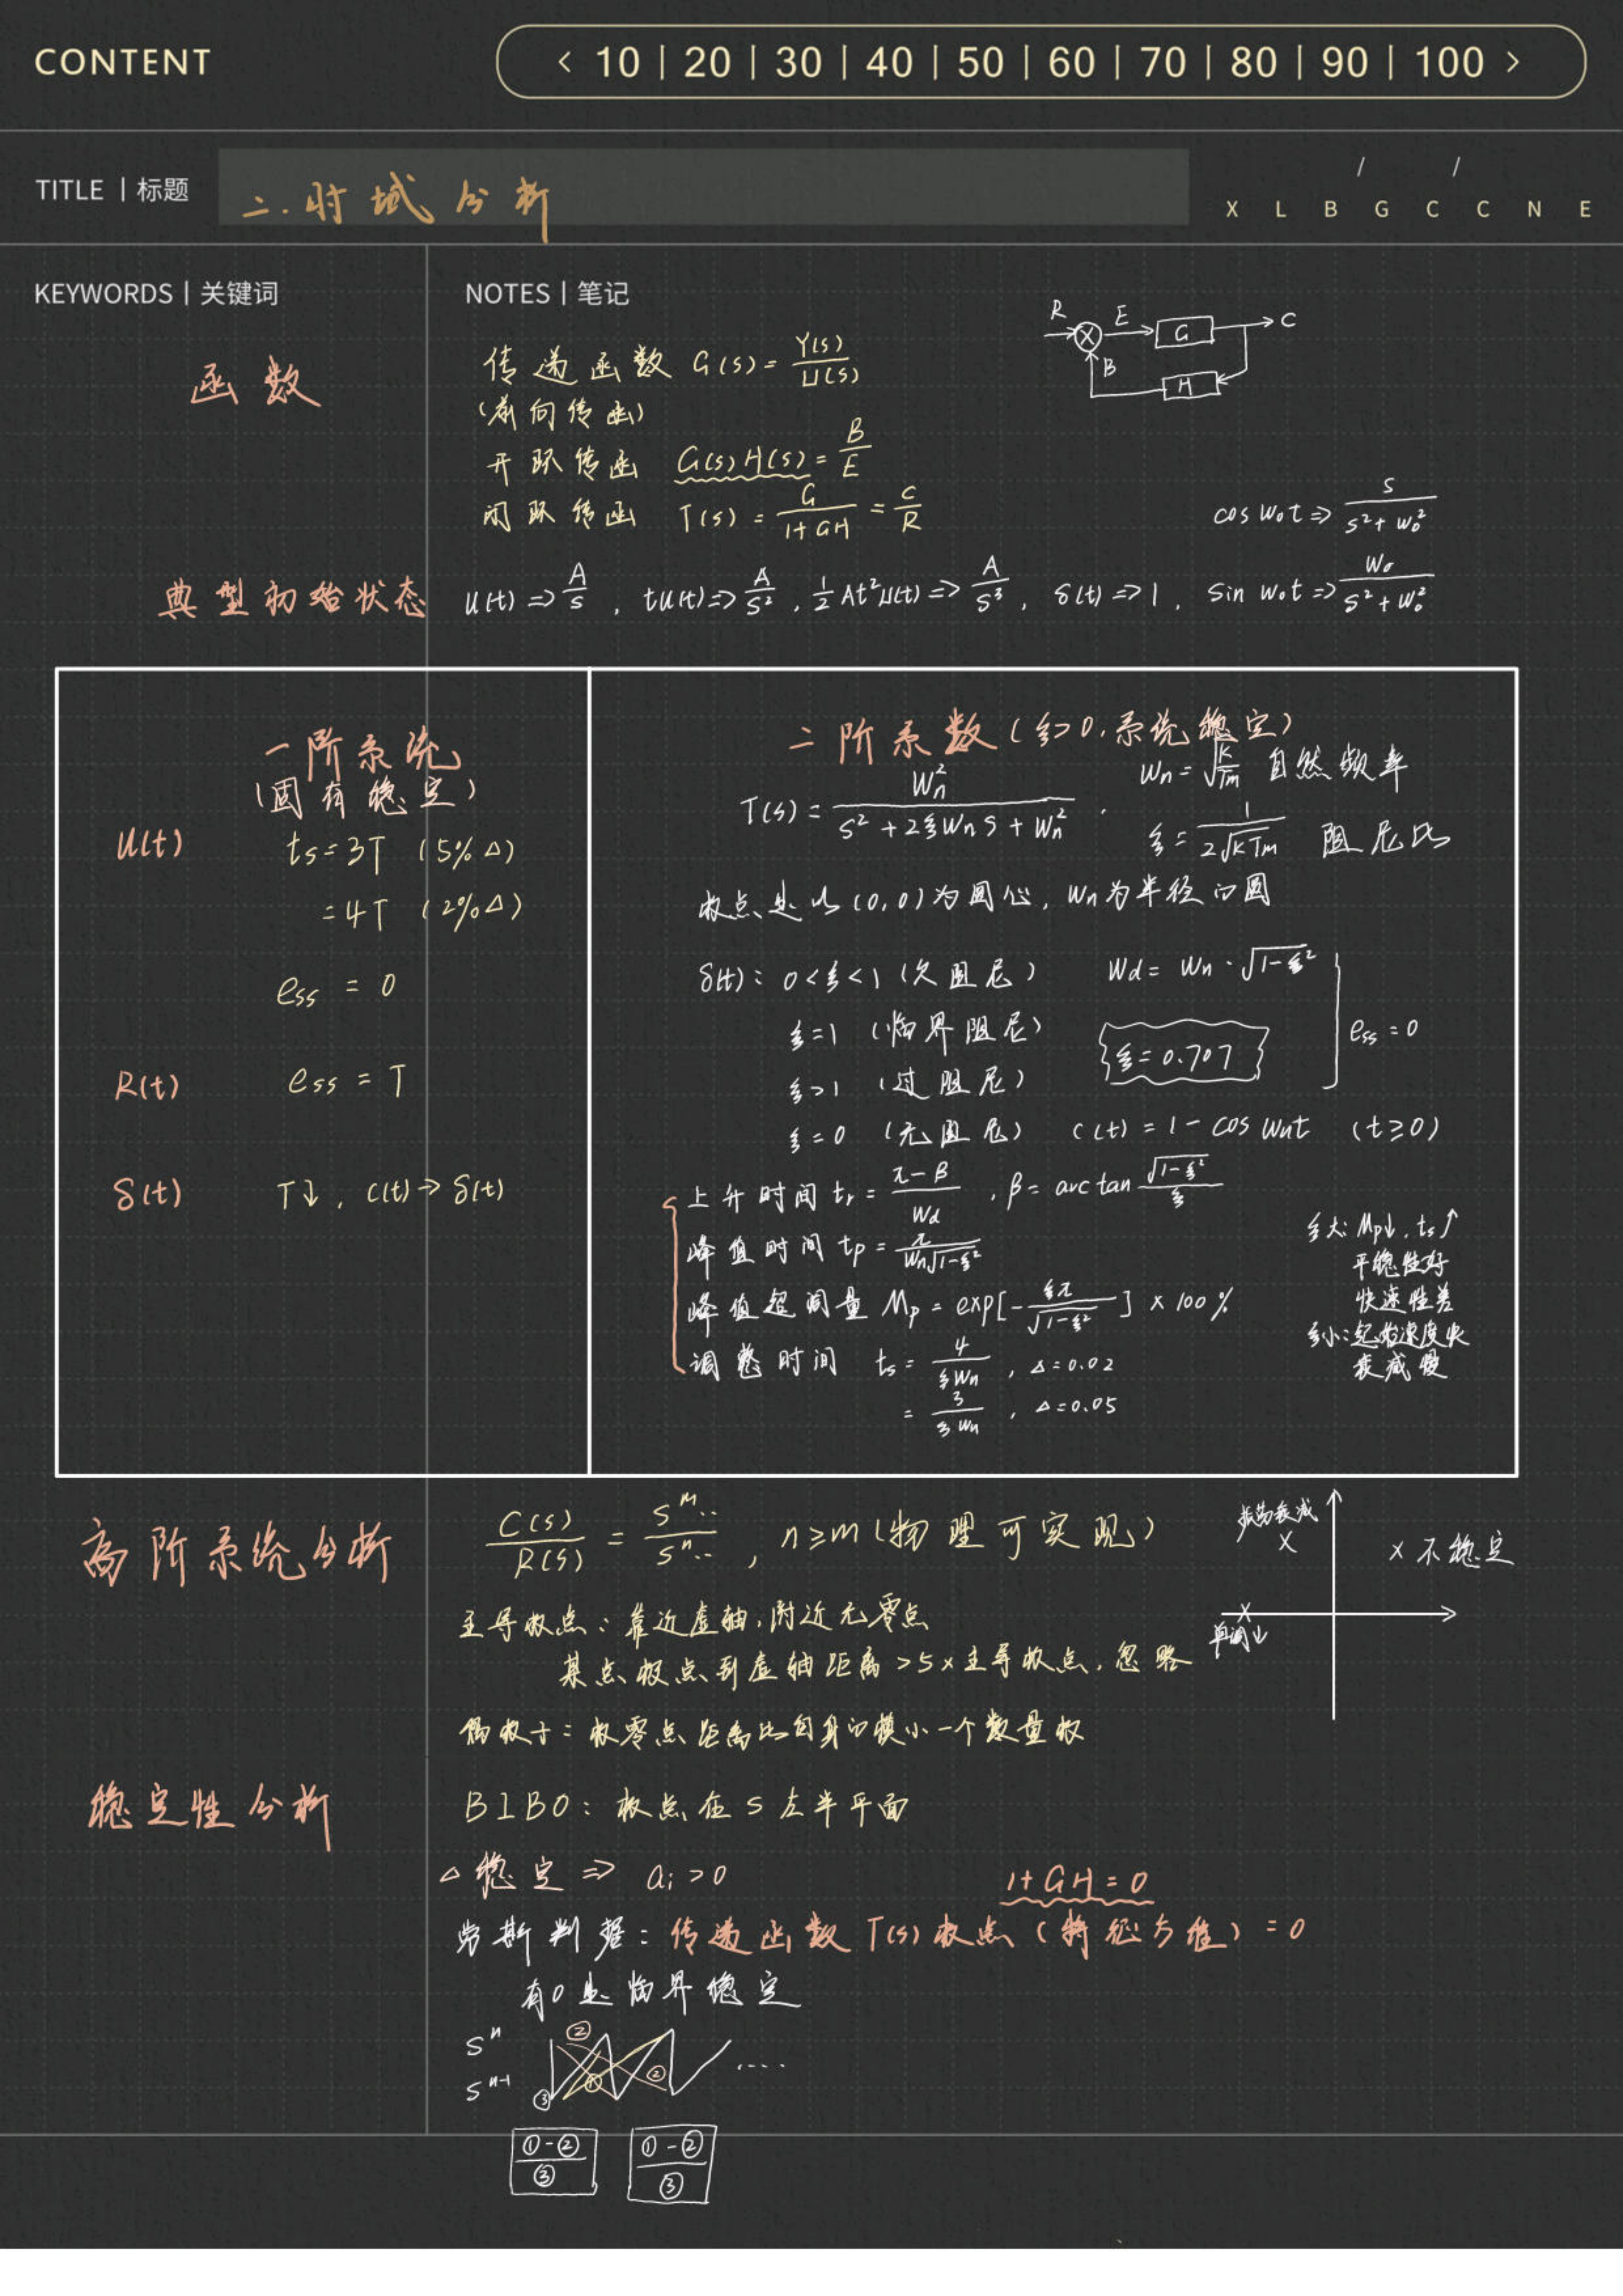 CONTENT
< 10 | 20 | 30 | 40 | 50 | 60 | 70 | 80 | 90 | 100 >
TITLE | 标题
二.时域分析
/ /
X L B G C C N E
KEYWORDS | 关键词
NOTES | 笔记
函数
传递函数 G(s) = Y(s)/U(s)
(前向传函)
开环传函 G(s)H(s) = B/E
闭环传函 T(s) = G/(1+GH) = C/R
R E G C
B H
cos w₀t => s/(s²+w₀²)
典型初始状态
u(t) => A/s , tu(t) => A/s² , ½At²u(t) => A/s³ , δ(t) => 1 , sin w₀t => w₀/(s²+w₀²)
一阶系统
(固有稳定)
U(t)
ts = 3T (5%Δ)
= 4T (2%Δ)
ess = 0
R(t)
ess = T
δ(t)
T↓, c(t) → δ(t)
二阶系数 (ξ>0,系统稳定)
T(s) = Wn²/(s²+2ξWnS+Wn²) ,
Wn = √(K/Tm) 自然频率
ξ = 1/(2√(KTm)) 阻尼比
极点是以(0,0)为圆心, Wn为半径的圆
δ(t): 0<ξ<1 (欠阻尼) Wd = Wn·√(1-ξ²)
ξ=1 (临界阻尼)
ξ=0.707
ess = 0
ξ>1 (过阻尼)
ξ=0 (无阻尼) c(t) = 1 - cos Wnt (t≥0)
上升时间 tr = (π-β)/Wd , β = arctan √(1-ξ²)/ξ
峰值时间 tp = π/(Wn√(1-ξ²))
峰值超调量 Mp = exp[-ξπ/√(1-ξ²)] × 100%
调整时间 ts = 4/(ξWn) , Δ=0.02
= 3/(ξWn) , Δ=0.05
ξ大: Mp↓, ts↑
平稳性好
快速性差
ξ小: 起始速度快
衰减慢
高阶系统分析
C(s)/R(s) = S^m../S^n.. , n≥m (物理可实现)
主导极点: 靠近虚轴,附近无零点
某点极点到虚轴距离>5×主导极点,忽略
偶极子: 极零点距离比自身的模小一个数量级
振荡衰减
×
× 不稳定
×
单调↓
稳定性分析
BIBO: 极点在S左半平面
△稳定 => ai>0
1+GH=0
劳斯判据: 传递函数T(s)极点 (特征方程) = 0
有0是临界稳定
S^n ②
S^n-1 ③ ① ② ....
①-②/③ ①-②/③